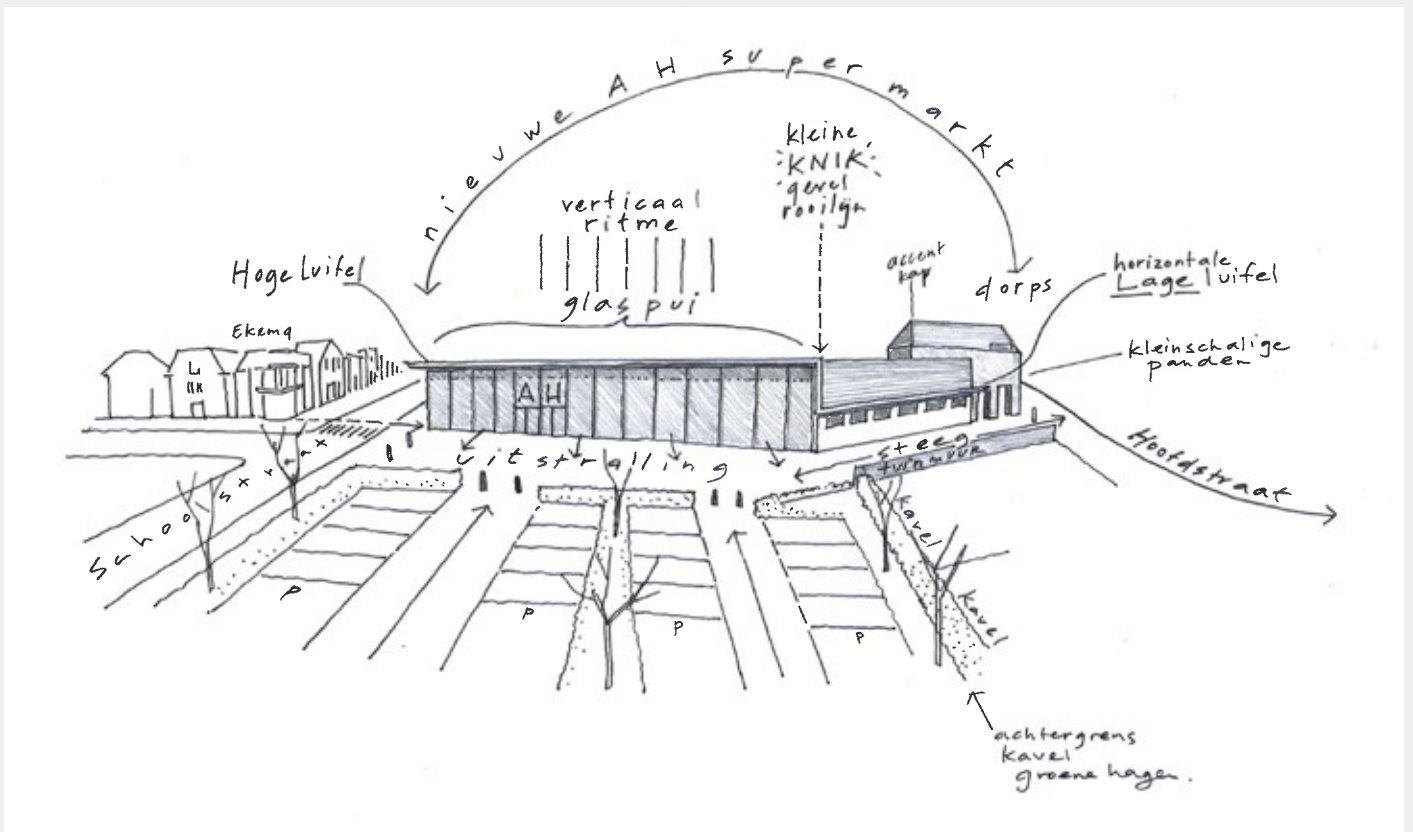 nieuwe AH supermarkt
kleine
KNIK
gevel
rooilijn
verticaal
ritme
glas pui
Hoge luifel
accent
kap
dorps
horizontale
Lage luifel
Ekema
kleinschalige
panden
AH
uitstralling
steeg
tuinmuur
Hoofdstraat
Schoolstraat
kavel
kavel
P
P
P
P
achtergrens
kavel
groene hagen.